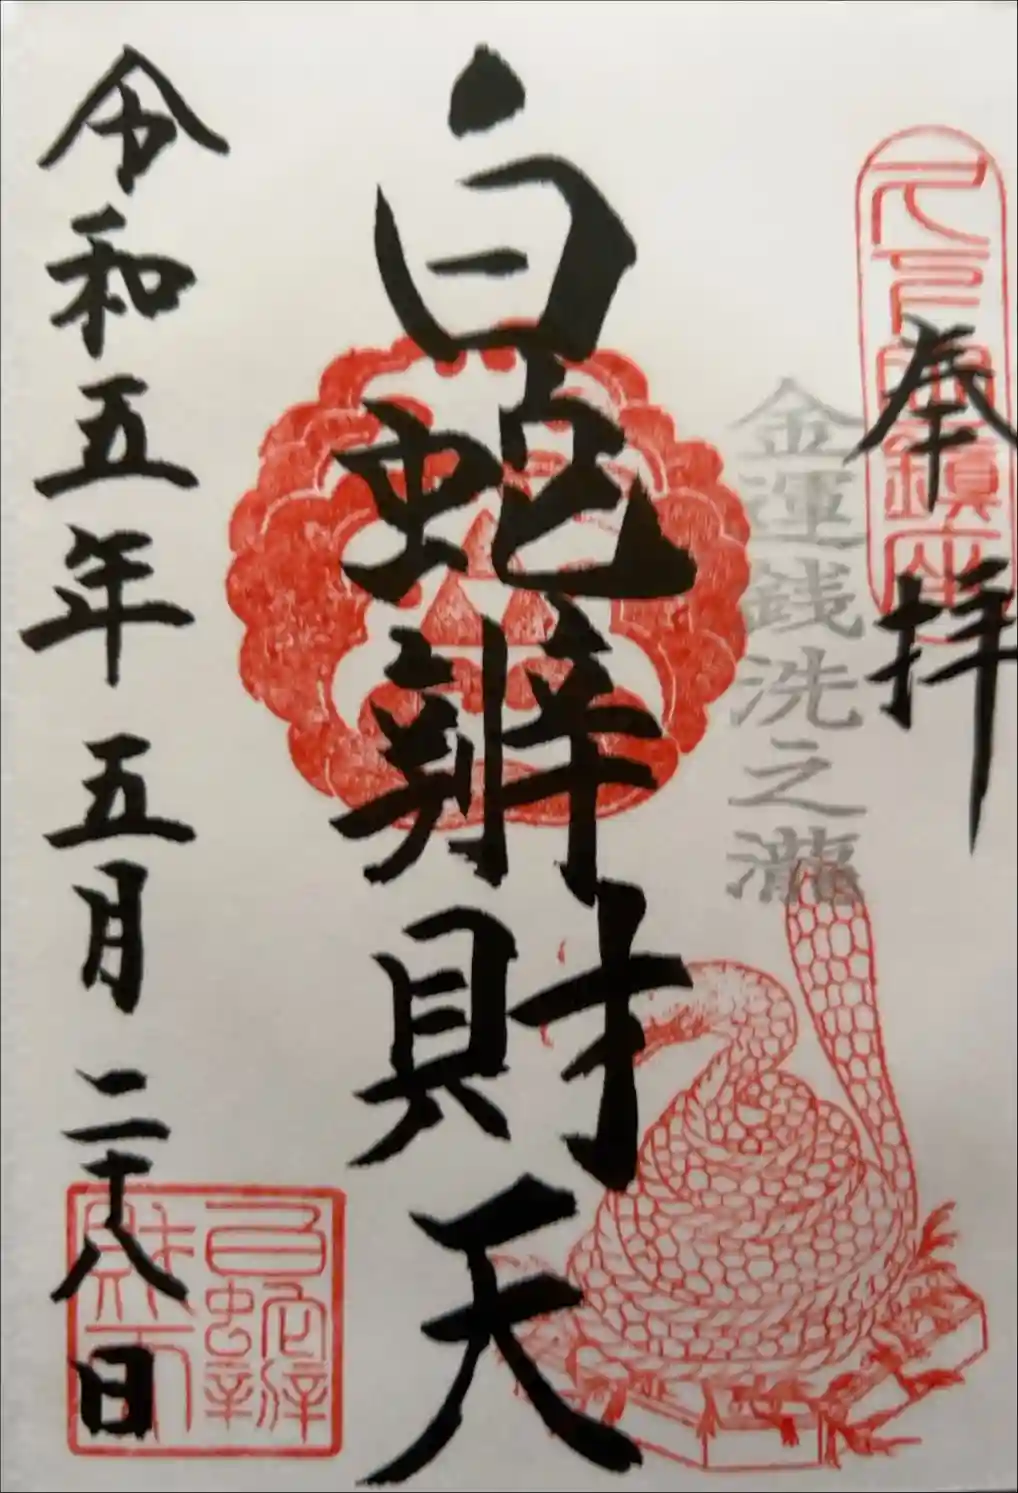 奉拝
金運銭洗之瀧
白蛇辨財天
令和五年五月二十八日
白蛇辨財天